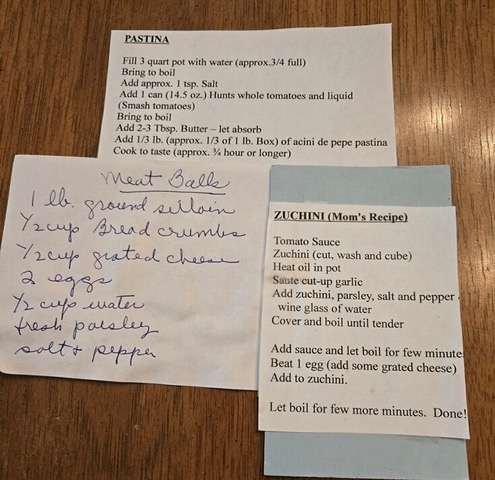 PASTINA
Fill 3 quart pot with water (approx.3/4 full)
Bring to boil
Add approx. 1 tsp. Salt
Add 1 can (14.5 oz.) Hunts whole tomatoes and liquid
(Smash tomatoes)
Bring to boil
Add 2-3 Tbsp. Butter – let absorb
Add 1/3 lb. (approx. 1/3 of 1 lb. Box) of acini de pepe pastina
Cook to taste (approx. ¾ hour or longer)
Meat Balls
1 lb. ground sirloin
1/2 cup Bread crumbs
1/2 cup grated cheese
2 eggs
1/2 cup water
fresh parsley
salt + pepper
ZUCHINI (Mom's Recipe)
Tomato Sauce
Zuchini (cut, wash and cube)
Heat oil in pot
Saute cut-up garlic
Add zuchini, parsley, salt and pepper
wine glass of water
Cover and boil until tender
Add sauce and let boil for few minute
Beat 1 egg (add some grated cheese)
Add to zuchini.
Let boil for few more minutes. Done!